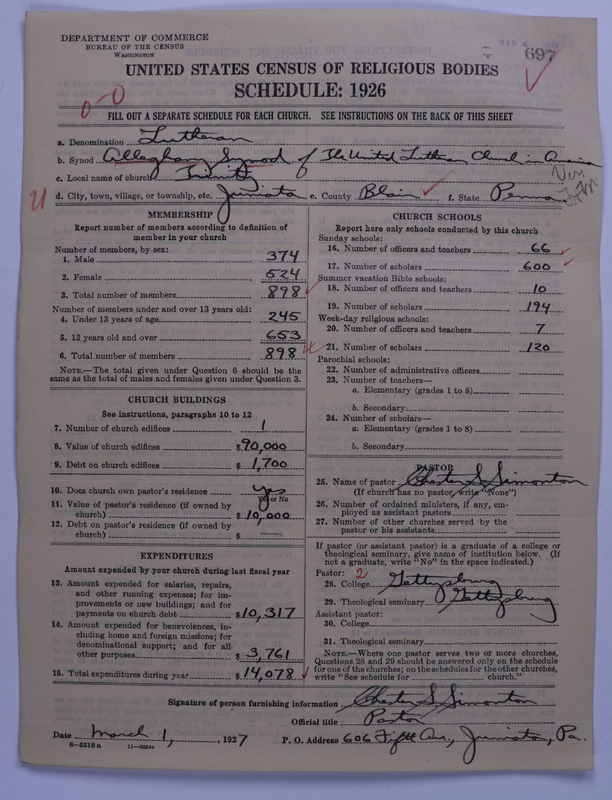 DEPARTMENT OF COMMERCE
BUREAU OF THE CENSUS
WASHINGTON
MAR 4
697
UNITED STATES CENSUS OF RELIGIOUS BODIES
SCHEDULE: 1926
0-0
FILL OUT A SEPARATE SCHEDULE FOR EACH CHURCH. SEE INSTRUCTIONS ON THE BACK OF THIS SHEET
a. Denomination Lutheran
b. Synod Alleghany Synod of The United Lutheran Church in America
c. Local name of church Trinity
d. City, town, village, or township, etc. Juniata e. County Blair f. State Penna
MEMBERSHIP
Report number of members according to definition of
member in your church
Number of members, by sex:
1. Male 374
2. Female 524
3. Total number of members 898
Number of members under and over 13 years old:
4. Under 13 years of age 245
5. 13 years old and over 653
6. Total number of members 898
NOTE.—The total given under Question 6 should be the
same as the total of males and females given under Question 3.
CHURCH BUILDINGS
See instructions, paragraphs 10 to 12
7. Number of church edifices 1
8. Value of church edifices $90,000
9. Debt on church edifices $1,700
10. Does church own pastor's residence yes
Yes or No
11. Value of pastor's residence (if owned by
church) $10,000
12. Debt on pastor's residence (if owned by
church) $
EXPENDITURES
Amount expended by your church during last fiscal year
13. Amount expended for salaries, repairs,
and other running expenses; for im-
provements or new buildings; and for
payments on church debt $10,317
14. Amount expended for benevolences, in-
cluding home and foreign missions; for
denominational support; and for all
other purposes $3,761
15. Total expenditures during year $14,078
CHURCH SCHOOLS
Report here only schools conducted by this church
Sunday schools:
16. Number of officers and teachers 66
17. Number of scholars 600
Summer vacation Bible schools:
18. Number of officers and teachers 10
19. Number of scholars 194
Week-day religious schools:
20. Number of officers and teachers 7
21. Number of scholars 120
Parochial schools:
22. Number of administrative officers
23. Number of teachers—
a. Elementary (grades 1 to 8)
b. Secondary
24. Number of scholars—
a. Elementary (grades 1 to 8)
b. Secondary
PASTOR
25. Name of pastor Chester S. Simonton
(If church has no pastor, write "None")
26. Number of ordained ministers, if any, em-
ployed as assistant pastors
27. Number of other churches served by the
pastor or his assistants
If pastor (or assistant pastor) is a graduate of a college or
theological seminary, give name of institution below. (If
not a graduate, write "No" in the space indicated.)
Pastor: 2
28. College Gettysburg
29. Theological seminary Gettysburg
Assistant pastor:
30. College
31. Theological seminary
NOTE.—Where one pastor serves two or more churches,
Questions 28 and 29 should be answered only on the schedule
for one of the churches; on the schedules for the other churches,
write "See schedule for church."
Signature of person furnishing information Chester S. Simonton
Official title Pastor
Date March 1, 1927 P. O. Address 606 Fifth Ave., Juniata, Pa.
8—5518a 11—9264